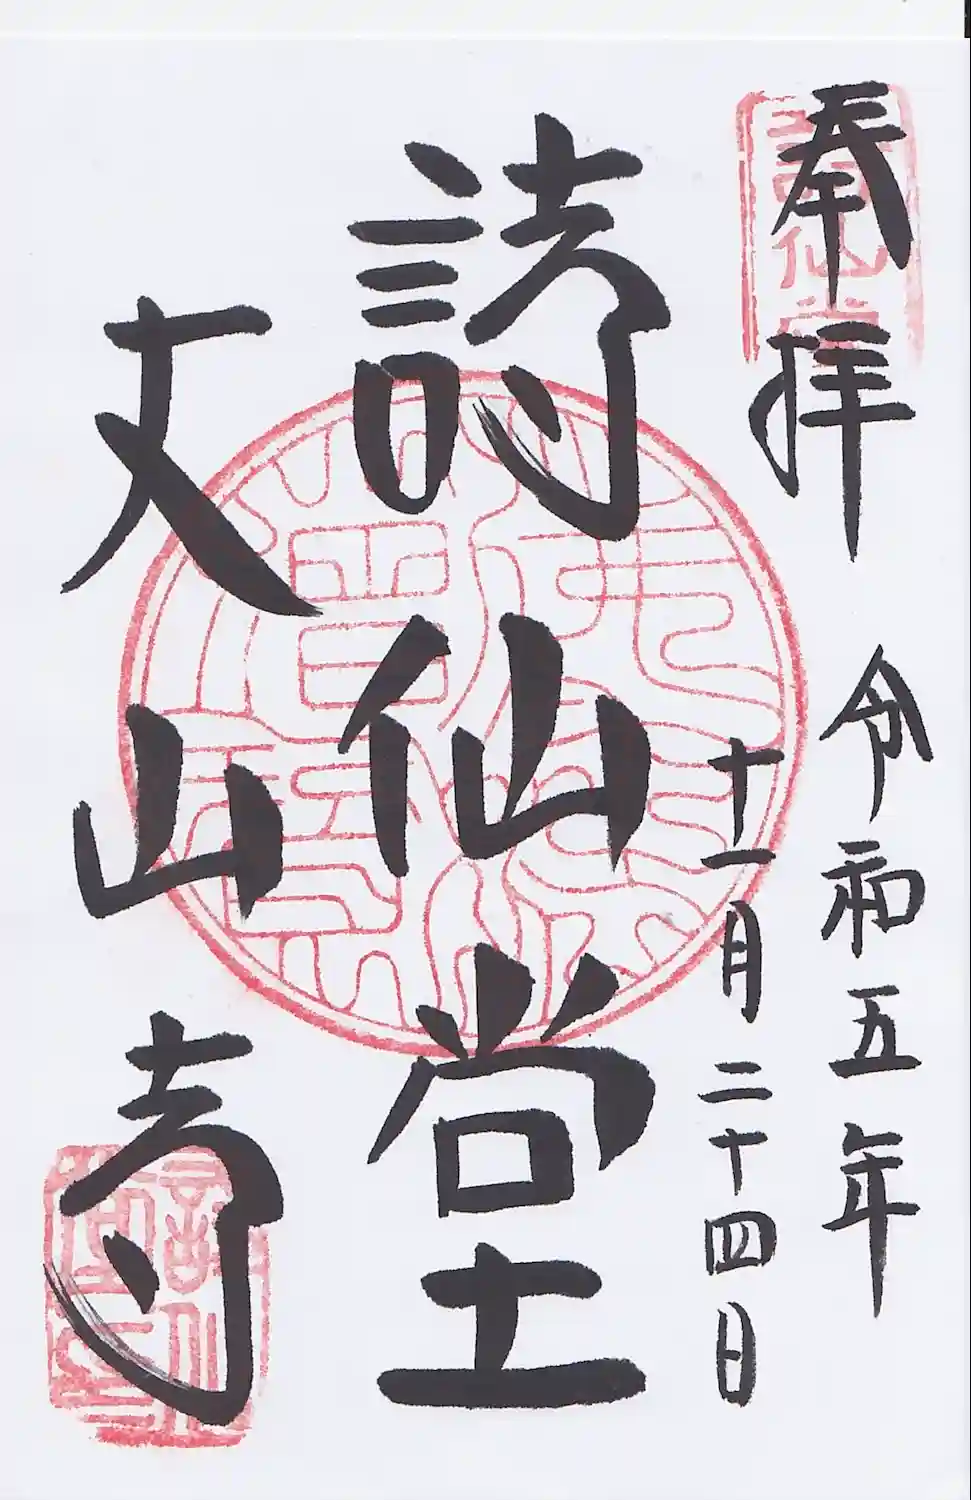 奉拝
令和五年
十一月二十四日
詩仙堂
丈山寺
詩仙堂